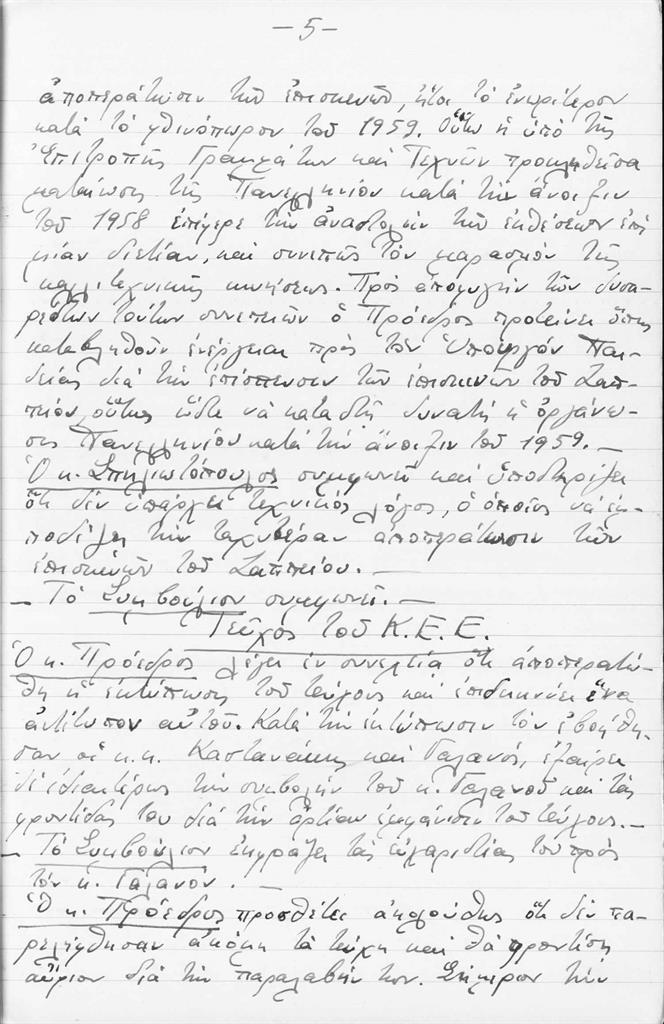 — 5 —
ἀποπεράτωσιν τῶν ἐπισκευῶν, ἤτοι τὸ ἐνωρίτερον
κατὰ τὸ φθινόπωρον τοῦ 1959. Οὕτω ἡ ὑπὸ τῆς
Ἐπιτροπῆς Γραμμάτων καὶ Τεχνῶν προκληθεῖσα
ματαίωσις τῆς Πανελληνίου κατὰ τὴν ἄνοιξιν
τοῦ 1958 ἐπέφερε τὴν ἀναστολὴν τῶν ἐκθέσεων ἐπὶ
μίαν διετίαν, καὶ συνεπῶς τὸν μαρασμὸν τῆς
καλλιτεχνικῆς κινήσεως. Πρὸς ἀποφυγὴν τῶν δυσα-
ρέστων τούτων συνεπειῶν ὁ Πρόεδρος προτείνει ὅπως
καταβληθοῦν ἐνέργειαι πρὸς τὸν Ὑπουργὸν Παι-
δείας διὰ τὴν ἐπίσπευσιν τῶν ἐπισκευῶν τοῦ Ζαπ-
πείου, οὕτως ὥστε νὰ καταστῆ δυνατὴ ἡ ὀργάνω-
σις Πανελληνίου κατὰ τὴν ἄνοιξιν τοῦ 1959. —
Ὁ κ. Σπηλιωτόπουλος συμφωνεῖ καὶ ὑποστηρίζει
ὅτι δὲν ὑπάρχει τεχνικὸς λόγος, ὁ ὁποῖος νὰ ἐμ-
ποδίζη τὴν ταχυτέραν ἀποπεράτωσιν τῶν
ἐπισκευῶν τοῦ Ζαππείου. —
— Τὸ Συμβούλιον συμφωνεῖ. —
Τεῦχος τοῦ Κ.Ε.Ε.
Ὁ κ. Πρόεδρος λέγει ἐν συνεχείᾳ ὅτι ἀποπερατώ-
θη ἡ ἐκτύπωσις τοῦ τεύχους καὶ ἐπιδεικνύει ἕνα
ἀντίτυπον αὐτοῦ. Κατὰ τὴν ἐκτύπωσιν τὸν ἐβοήθη-
σαν οἱ κ.κ. Καστανάκης καὶ Γαλανός, ἐξαίρει
δὲ ἰδιαιτέρως τὴν συμβολὴν τοῦ κ. Γαλανοῦ καὶ τὰς
φροντίδας του διὰ τὴν ἀρτίαν ἐμφάνισιν τοῦ τεύχους. —
— Τὸ Συμβούλιον ἐκφράζει τὰς εὐχαριστίας του πρὸς
τὸν κ. Γαλανόν. —
Ὁ κ. Πρόεδρος προσθέτει ἀκολούθως ὅτι δὲν πα-
ρελήφθησαν ἀκόμη τὰ τεύχη καὶ θὰ φροντίση
αὔριον διὰ τὴν παραλαβήν των. Σήμερον τὴν